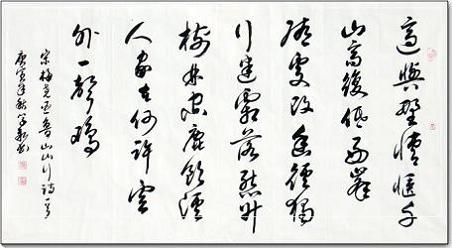 適與野情愜千
山高復低好峯
隨處改幽徑獨
行迷霜落熊升
樹林空鹿飲溪
人家在何許雲
外一聲鷄
宋梅堯臣魯山山行詩一首
庚寅年秋